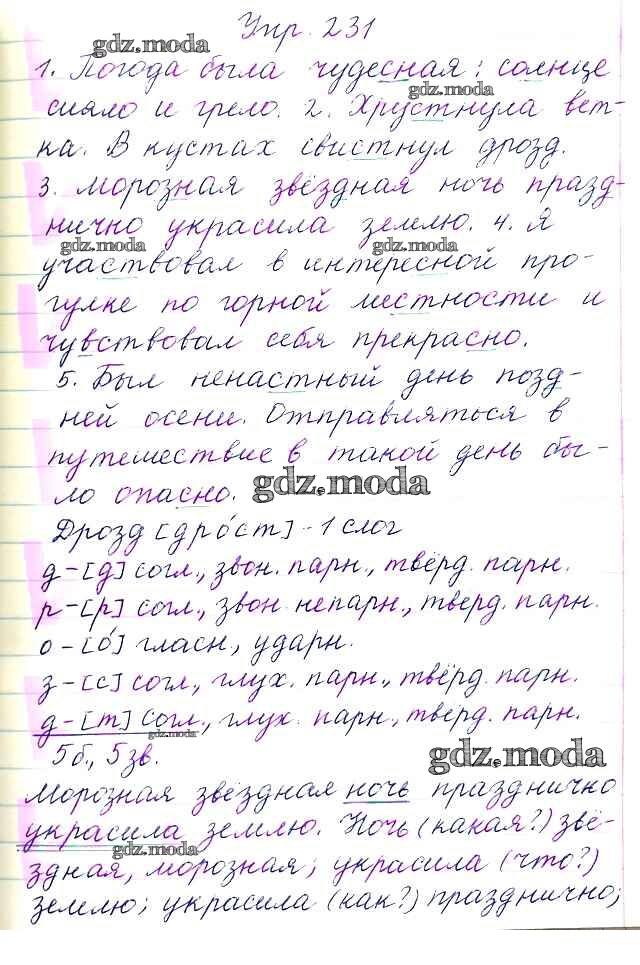 Упр. 231
gdz.moda
1. Погода была чудесная: солнце
gdz.moda
сияло и грело. 2. Хрустнула вет-
ка. В кустах свистнул дрозд.
3. Морозная звёздная ночь празд-
нично украсила землю. 4. Я
gdz.moda gdz.moda
участвовал в интересной про-
гулке по горной местности и
чувствовал себя прекрасно.
5. Был ненастный день позд-
ней осени. Отправляться в
путешествие в такой день бы-
ло опасно. gdz.moda
Дрозд [дро́ст] - 1 слог
д - [д] согл., звон. парн., твёрд. парн.
р - [р] согл., звон непарн., тверд. парн.
о - [о́] гласн., ударн.
з - [с] согл., глух. парн., твёрд. парн.
д - [т] согл., глух. парн., тверд. парн.
gdz.moda
5 б., 5 зв.
gdz.moda
Морозная звёздная ночь празднично
украсила землю. Ночь (какая?) звё-
gdz.moda
здная, морозная; украсила (что?)
землю; украсила (как?) празднично;